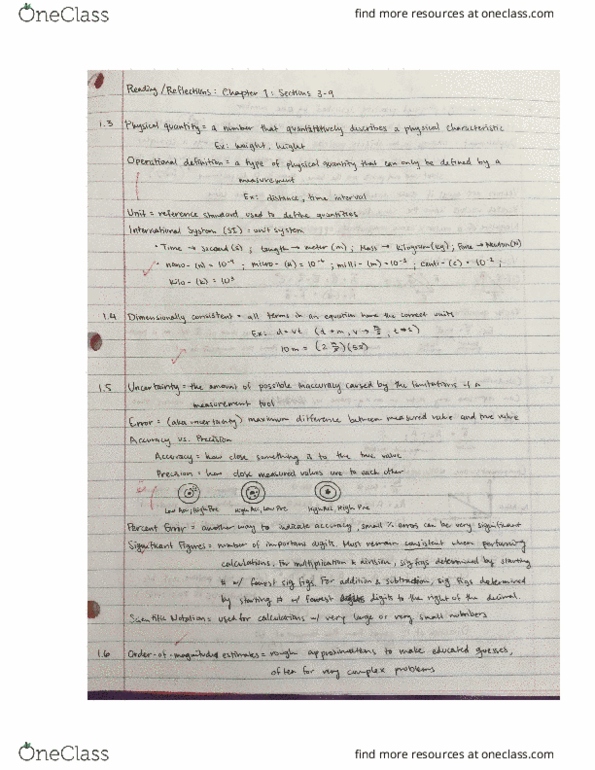 OneClass
find more resources at oneclass.com
Reading/Reflections: Chapter 1: Sections 3-9
1.3 Physical quantity = a number that quantitatively describes a physical characteristic
Ex: weight, height
Operational definition = a type of physical quantity that can only be defined by a
measurement
Ex: distance, time interval
Unit = reference standard used to define quantities
International System (SI) = unit system
• Time → second (s) ; Length → meter (m) ; Mass → kilogram (kg) ; Force → Newton (N)
• nano- (n) = 10⁻⁹ ; micro- (μ) = 10⁻⁶ ; milli- (m) = 10⁻³ ; centi- (c) = 10⁻² ;
kilo- (k) = 10³
1.4 Dimensionally consistent = all terms in an equation have the correct units
Ex: d = vt (d → m, v → m/s, t → s)
10m = (2 m/s)(5s)
1.5 Uncertainty = the amount of possible inaccuracy caused by the limitations of a
measurement tool
Error = (aka uncertainty) maximum difference between measured value and true value
Accuracy vs. Precision
Accuracy = how close something is to the true value
Precision = how close measured values are to each other
Low Acc, High Pre High Acc, Low Pre High Acc, High Pre
Percent Error = another way to indicate accuracy, small % errors can be very significant
Significant Figures = number of important digits. Must remain consistent when performing
calculations. For multiplication & division, sig figs determined by starting
# w/ fewest sig figs. For addition & subtraction, sig figs determined
by starting # w/ fewest digits to the right of the decimal.
Scientific Notation = used for calculations w/ very large or very small numbers
1.6 Order-of-magnitude estimates = rough approximations to make educated guesses,
often for very complex problems
OneClass
find more resources at oneclass.com